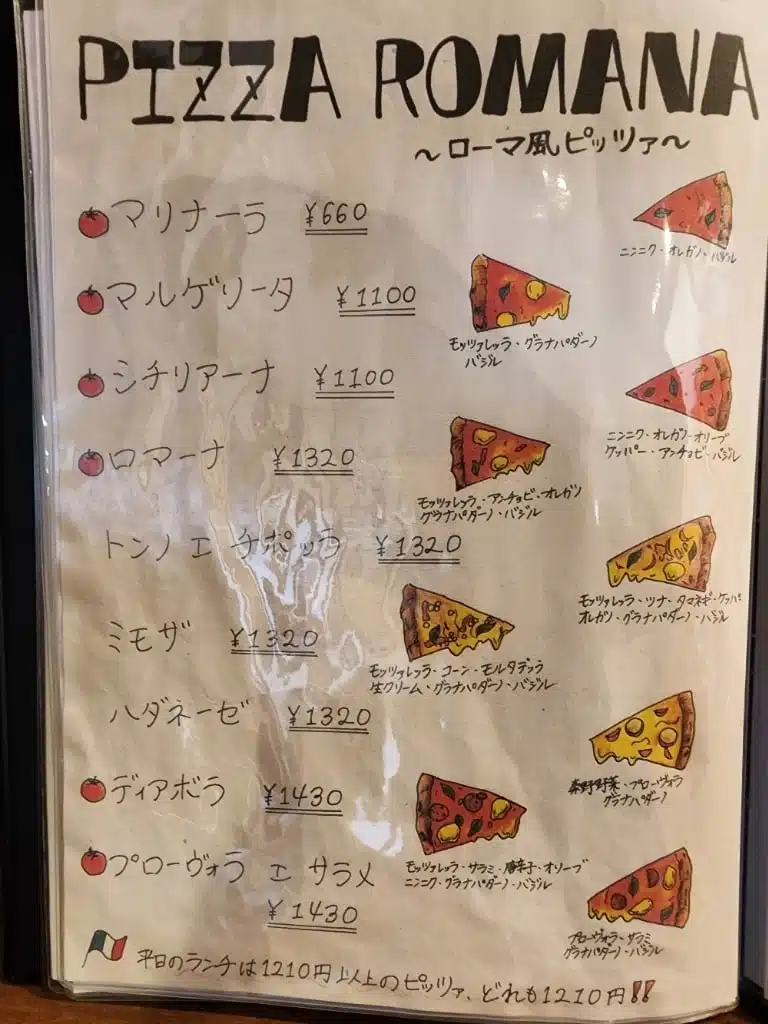 PIZZA ROMANA
～ローマ風ピッツァ～
マリナーラ ¥660
ニンニク・オレガノ・バジル
マルゲリータ ¥1100
モッツァレッラ・グラナパダーノ
バジル
シチリアーナ ¥1100
ニンニク・オレガノ・オリーブ
ケッパー・アンチョビ・バジル
ロマーナ ¥1320
モッツァレッラ・アンチョビ・オレガノ
グラナパダーノ・バジル
トンノ エ チポッラ ¥1320
モッツァレッラ・ツナ・タマネギ・ケッパー
オレガノ・グラナパダーノ・バジル
ミモザ ¥1320
モッツァレッラ・コーン・モルタデッラ
生クリーム・グラナパダーノ・バジル
ハダネーゼ ¥1320
秦野野菜・プローヴォラ
グラナパダーノ
ディアボラ ¥1430
モッツァレッラ・サラミ・唐辛子・オリーブ
ニンニク・グラナパダーノ・バジル
プローヴォラ エ サラメ
¥1430
プローヴォラ・サラミ
グラナパダーノ・バジル
平日のランチは1210円以上のピッツァ、どれも1210円!!